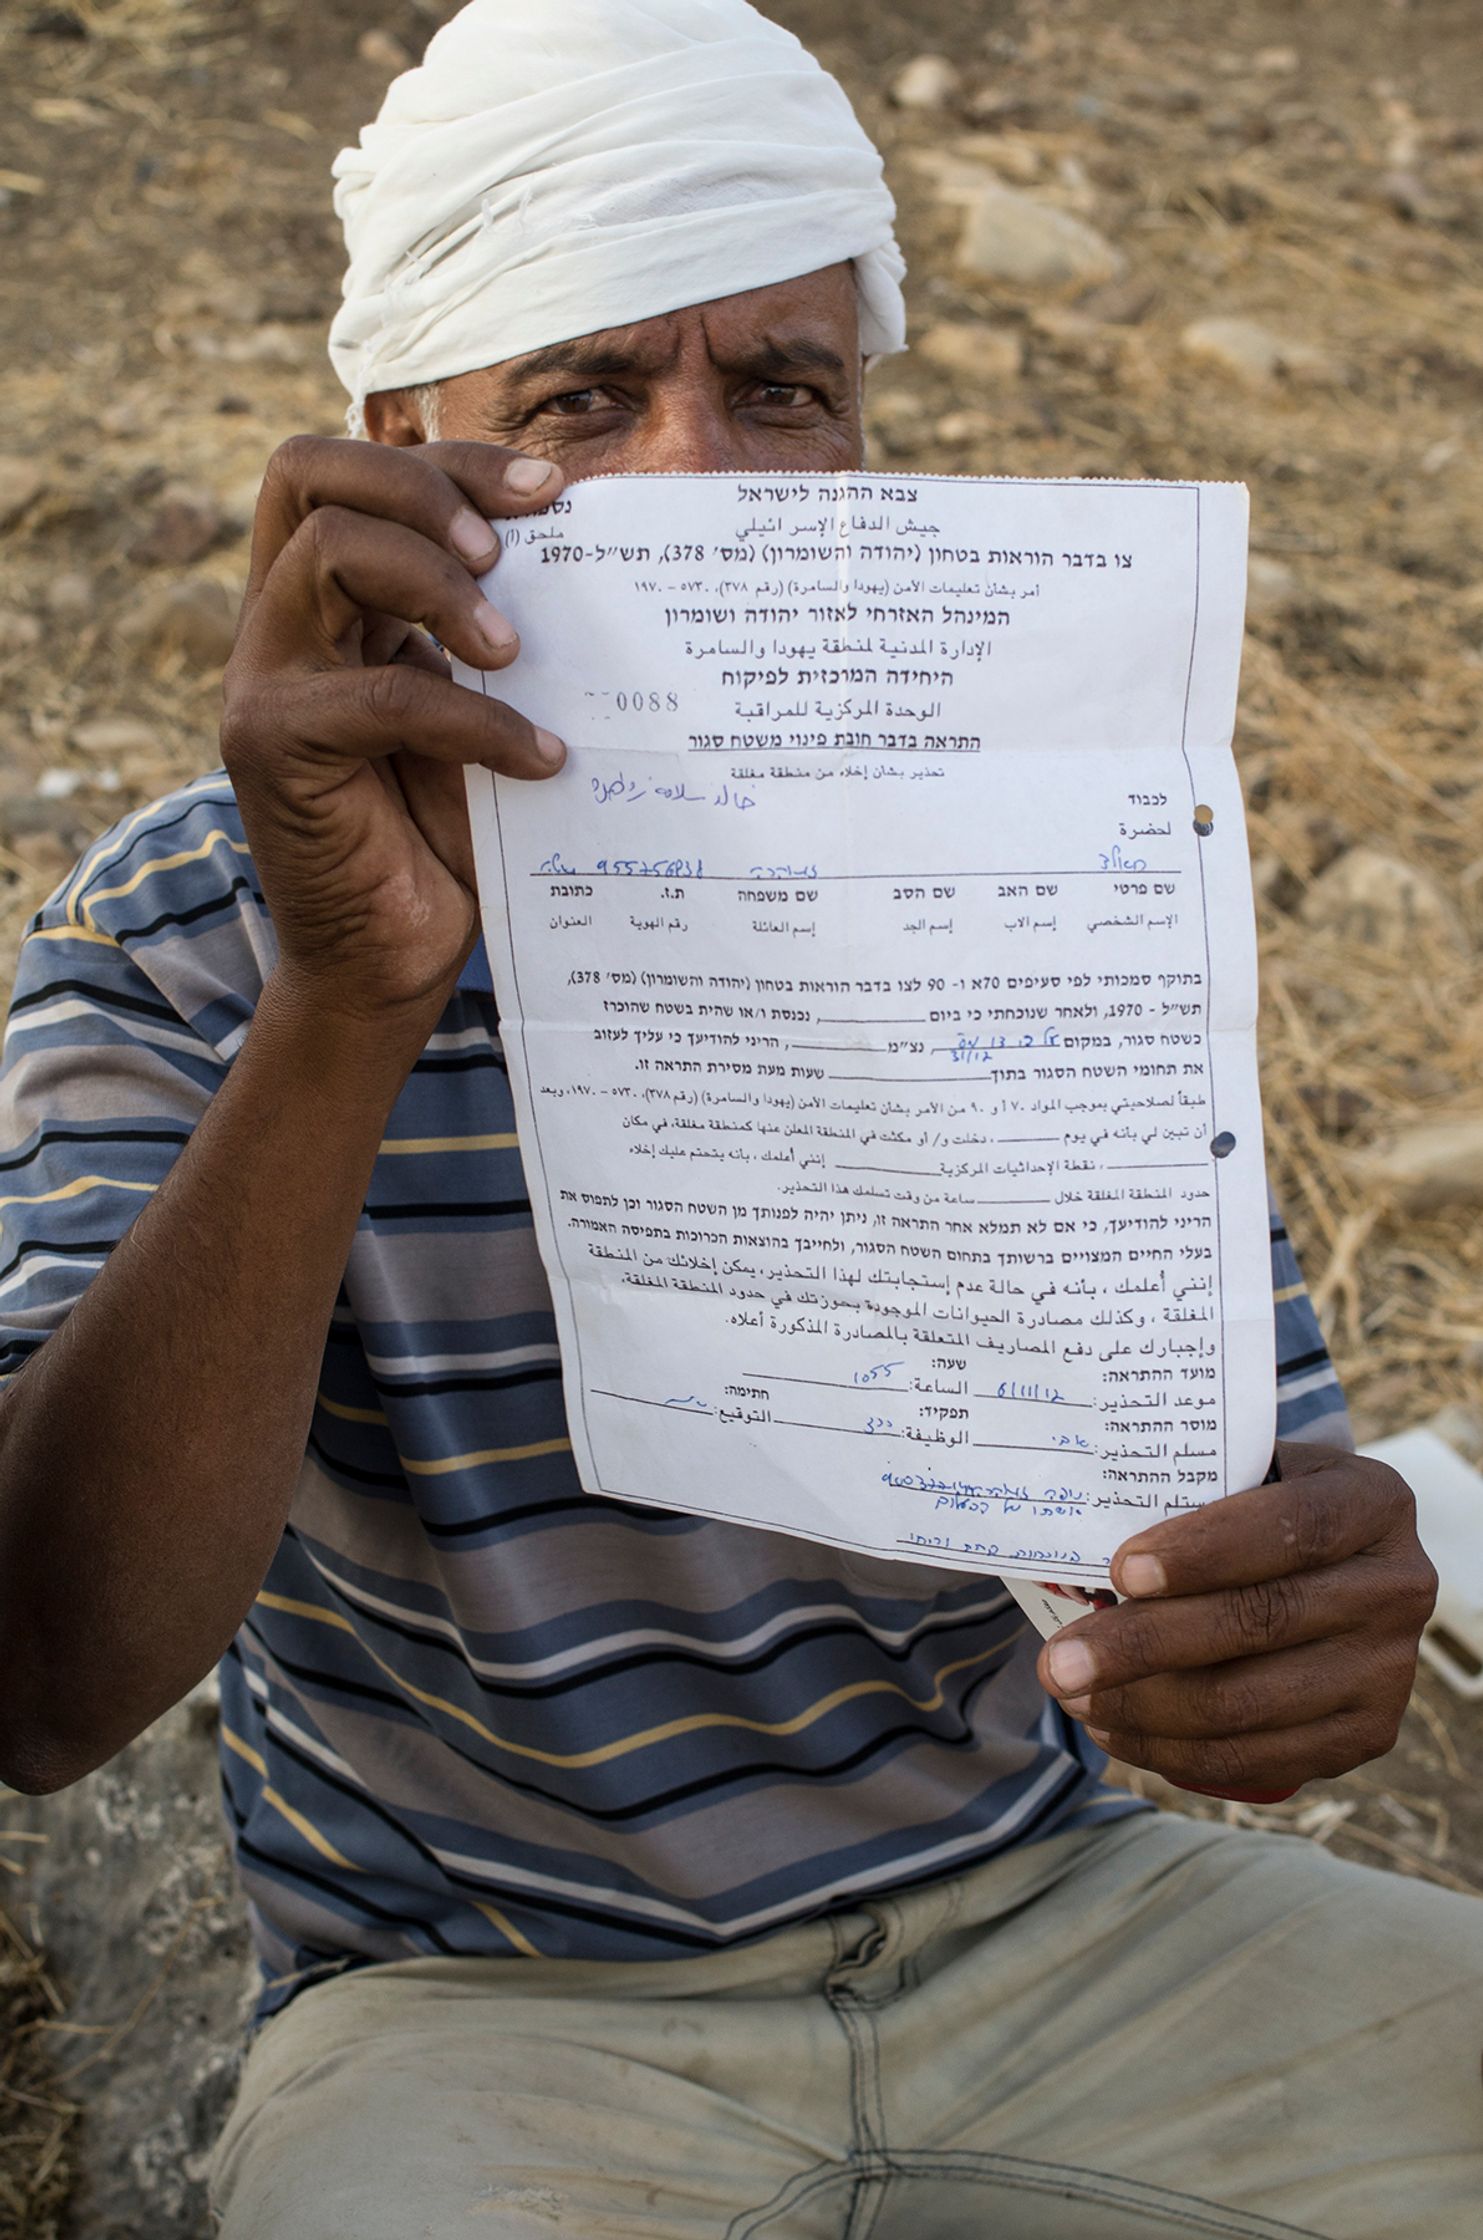 צבא ההגנה לישראל
جيش الدفاع الإسرائيلي
ملحق (أ)
צו בדבר הוראות בטחון (יהודה והשומרון) (מס׳ 378), תש״ל-1970
أمر بشأن تعليمات الأمن (يهودا والسامرة) (رقم ٣٧٨)، ٥٧٣٠ - ١٩٧٠
המינהל האזרחי לאזור יהודה ושומרון
الإدارة المدنية لمنطقة يهودا والسامرة
היחידה המרכזית לפיקוח
الوحدة المركزية للمراقبة
0088
התראה בדבר חובת פינוי משטח סגור
تحذير بشأن إخلاء من منطقة مغلقة
לכבוד
خالد سلامة
لحضرة
חאלד זואהרה
שם פרטי שם האב שם הסב שם משפחה ת.ז. כתובת
الإسم الشخصي إسم الاب إسم الجد إسم العائلة رقم الهوية العنوان
בתוקף סמכותי לפי סעיפים 70א ו- 90 לצו בדבר הוראות בטחון (יהודה והשומרון) (מס׳ 378),
תש״ל - 1970, ולאחר שנוכחתי כי ביום ________, נכנסת ו/או שהית בשטח שהוכרז
כשטח סגור, במקום ________, נצ״מ ________, הריני להודיעך כי עליך לעזוב
את תחומי השטח הסגור בתוך ________ שעות מעת מסירת התראה זו.
طبقاً لصلاحيتي بموجب المواد ٧٠أ و ٩٠ من الأمر بشأن تعليمات الأمن (يهودا والسامرة) (رقم ٣٧٨)، ٥٧٣٠ - ١٩٧٠، وبعد
أن تبين لي بأنه في يوم ________، دخلت و/ أو مكثت في المنطقة المعلن عنها كمنطقة مغلقة، في مكان
________، نقطة الإحداثيات المركزية ________ إنني أعلمك ، بأنه يتحتم عليك إخلاء
حدود المنطقة المغلقة خلال ________ ساعة من وقت تسلمك هذا التحذير.
הריני להודיעך, כי אם לא תמלא אחר התראה זו, ניתן יהיה לפנותך מן השטח הסגור וכן לתפוס את
בעלי החיים המצויים ברשותך בתחום השטח הסגור, ולחייבך בהוצאות הכרוכות בתפיסה האמורה.
إنني أعلمك ، بأنه في حالة عدم إستجابتك لهذا التحذير، يمكن إخلائك من المنطقة
المغلقة ، وكذلك مصادرة الحيوانات الموجودة بحوزتك في حدود المنطقة المغلقة،
وإجبارك على دفع المصاريف المتعلقة بالمصادرة المذكورة أعلاه.
מועד ההתראה: שעה:
موعد التحذير: 6/11/12 الساعة: 1055
מוסר ההתראה: תפקיד: חתימה:
مسلم التحذير: אבי الوظيفة: التوقيع:
מקבל ההתראה:
مستلم التحذير: זואהרה
אשתו של